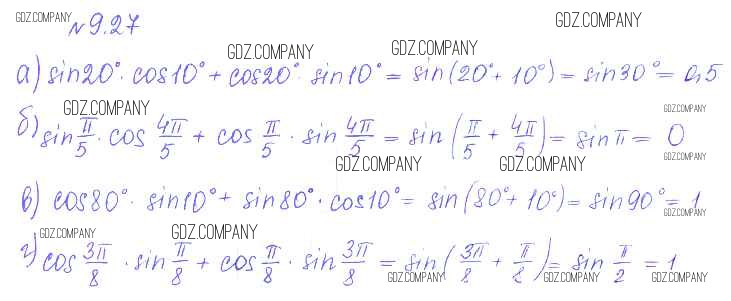 GDZ.COMPANY № 9.27 GDZ.COMPANY
GDZ.COMPANY GDZ.COMPANY
а) sin20°· cos10° + cos20° · sin10° = sin(20°+ 10°) = sin30° = 0,5
GDZ.COMPANY GDZ.COMPANY
б) sin π/5 · cos 4π/5 + cos π/5 · sin 4π/5 = sin (π/5 + 4π/5) = sin π = 0
GDZ.COMPANY GDZ.COMPANY GDZ.COMPANY
в) cos80°· sin10° + sin80° · cos10° = sin(80°+ 10°) = sin90° = 1
GDZ.COMPANY
GDZ.COMPANY GDZ.COMPANY
г) cos 3π/8 · sin π/8 + cos π/8 · sin 3π/8 = sin(3π/8 + π/8) = sin π/2 = 1
GDZ.COMPANY GDZ.COMPANY GDZ.COMPANY